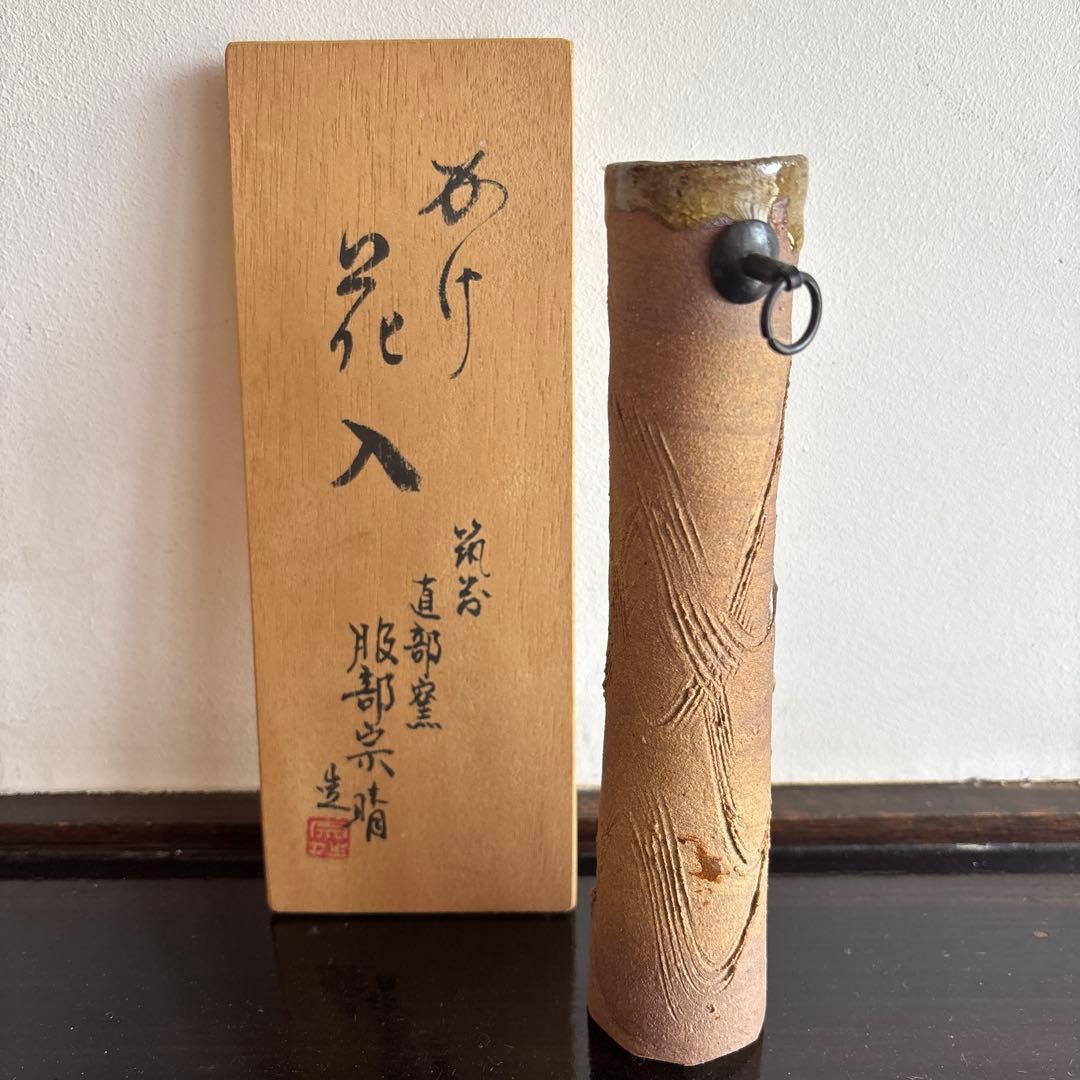 かけ
花入
筑前
直部窯
服部宗晴
造